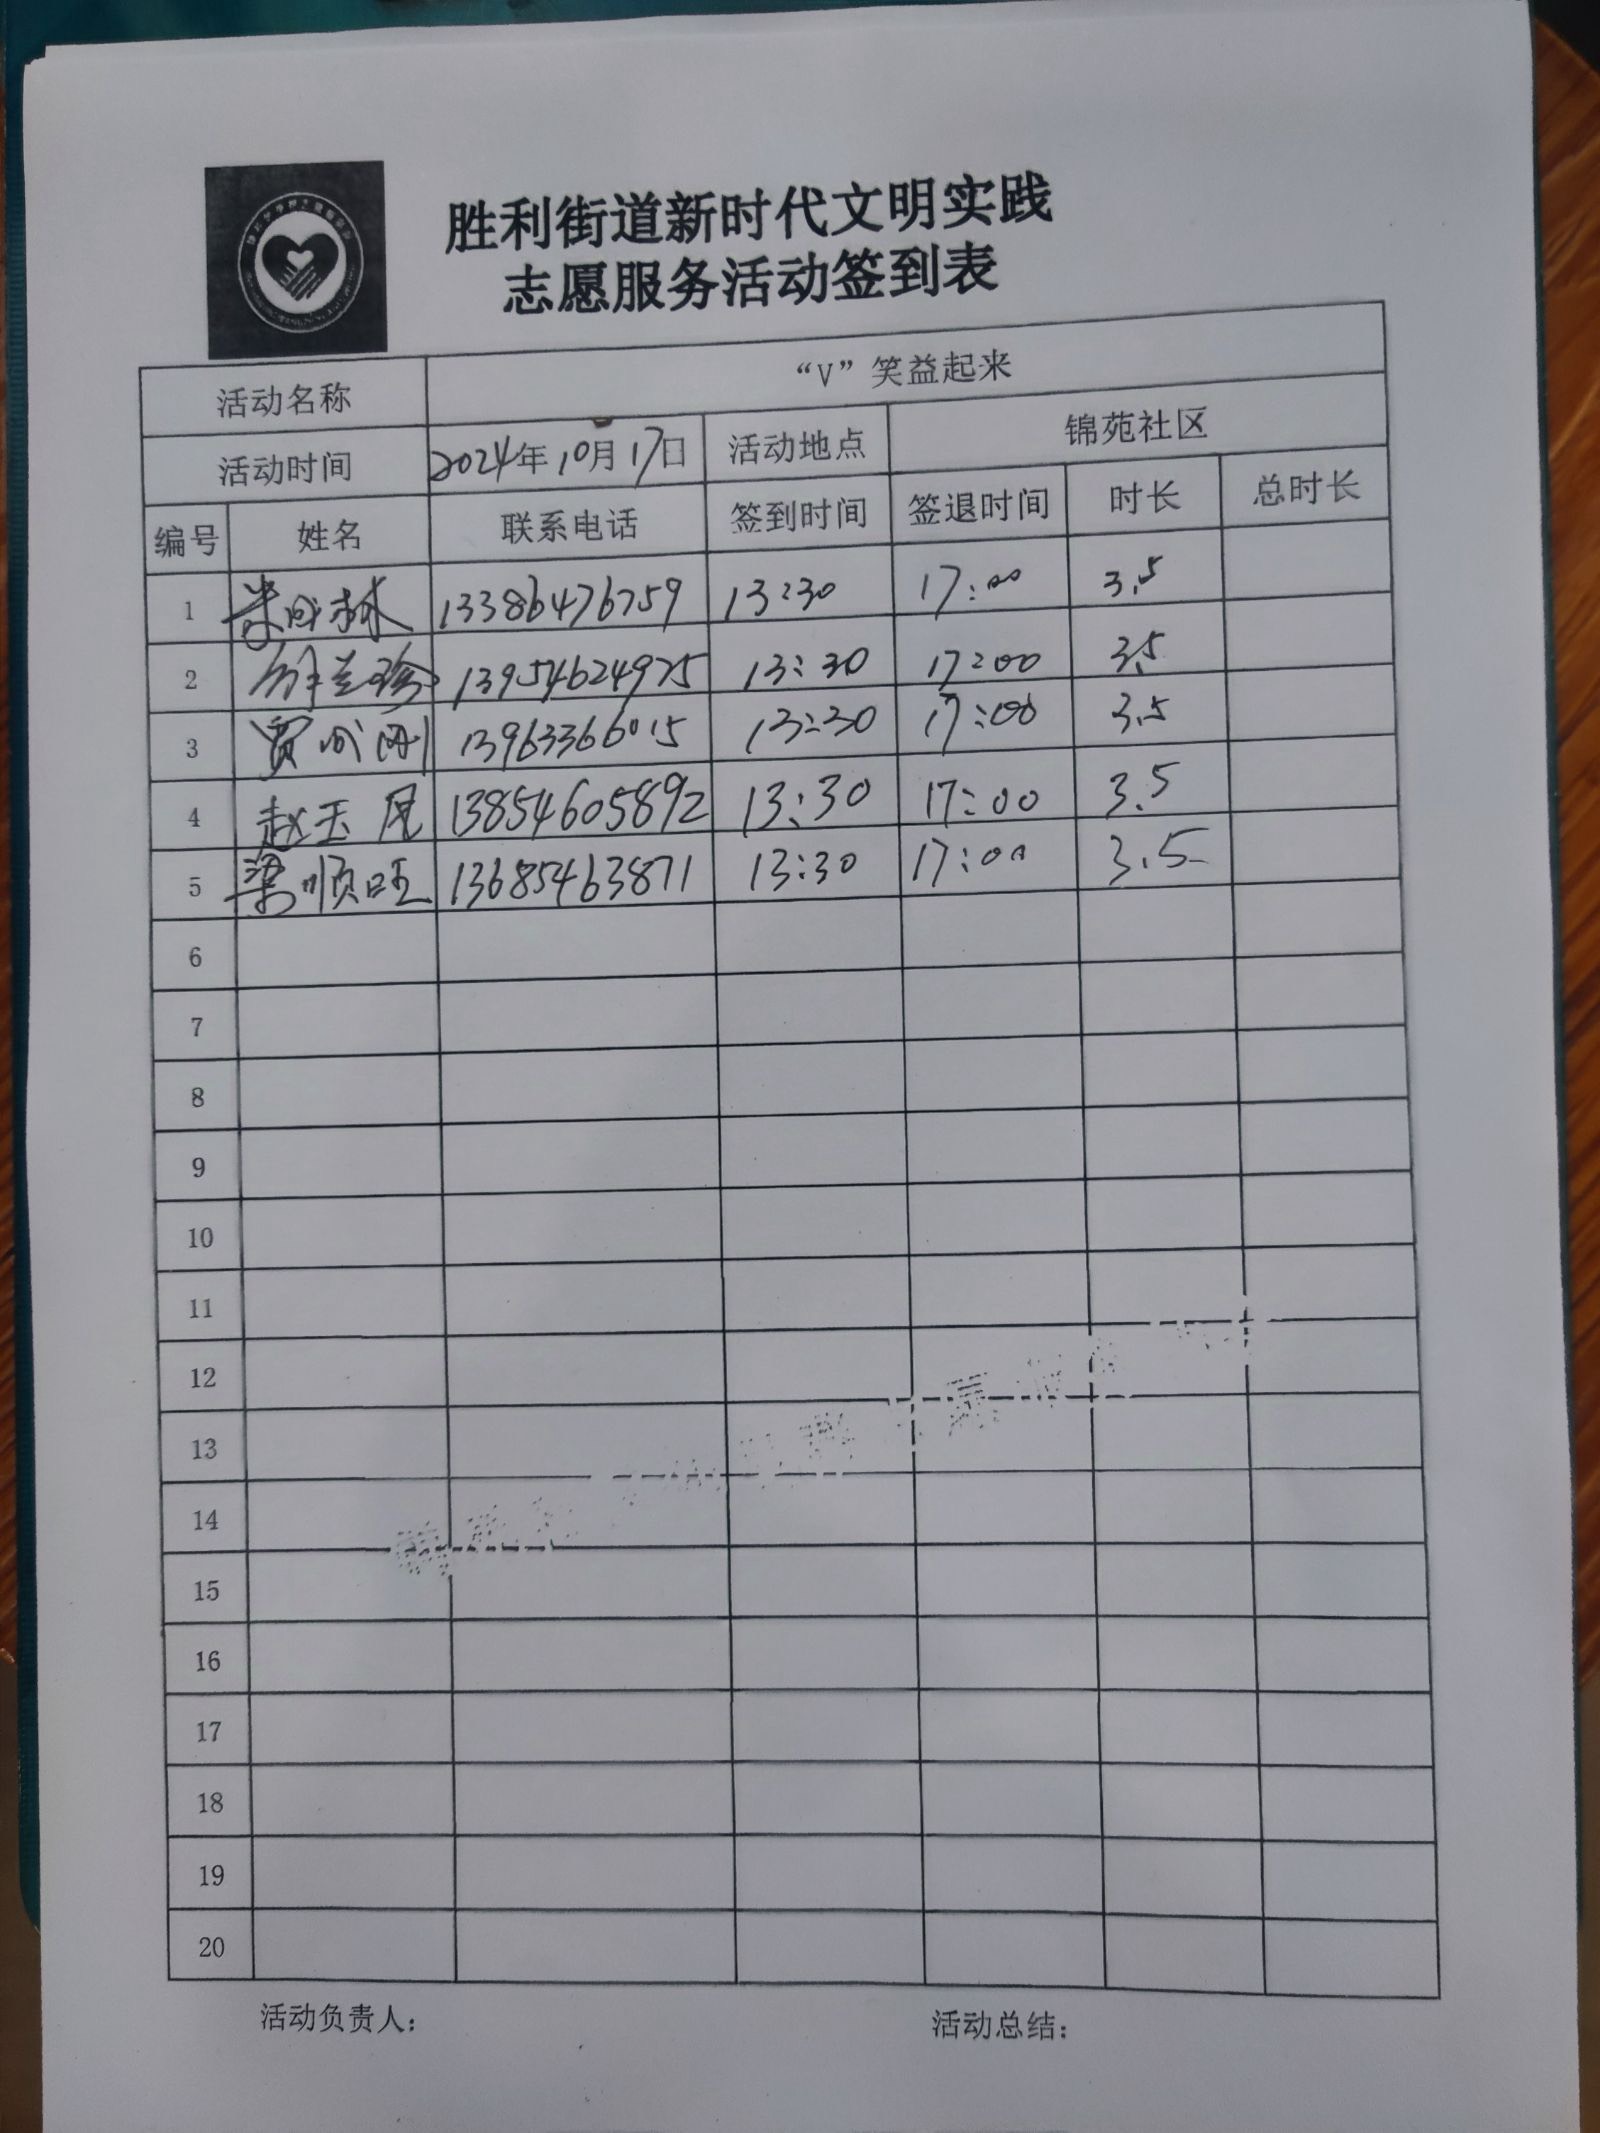 胜利街道新时代文明实践
志愿服务活动签到表
活动名称 “V”笑益起来
活动时间 2024年10月17日 活动地点 锦苑社区
编号 姓名 联系电话 签到时间 签退时间 时长 总时长
1 13386476759 13:30 17:00 3.5
2 13954624975 13:30 17:00 3.5
3 贾成刚 13963366015 13:30 17:00 3.5
4 赵玉凤 13854605892 13:30 17:00 3.5
5 梁顺旺 13685463871 13:30 17:00 3.5
6
7
8
9
10
11
12
13
14
15
16
17
18
19
20
活动负责人： 活动总结：